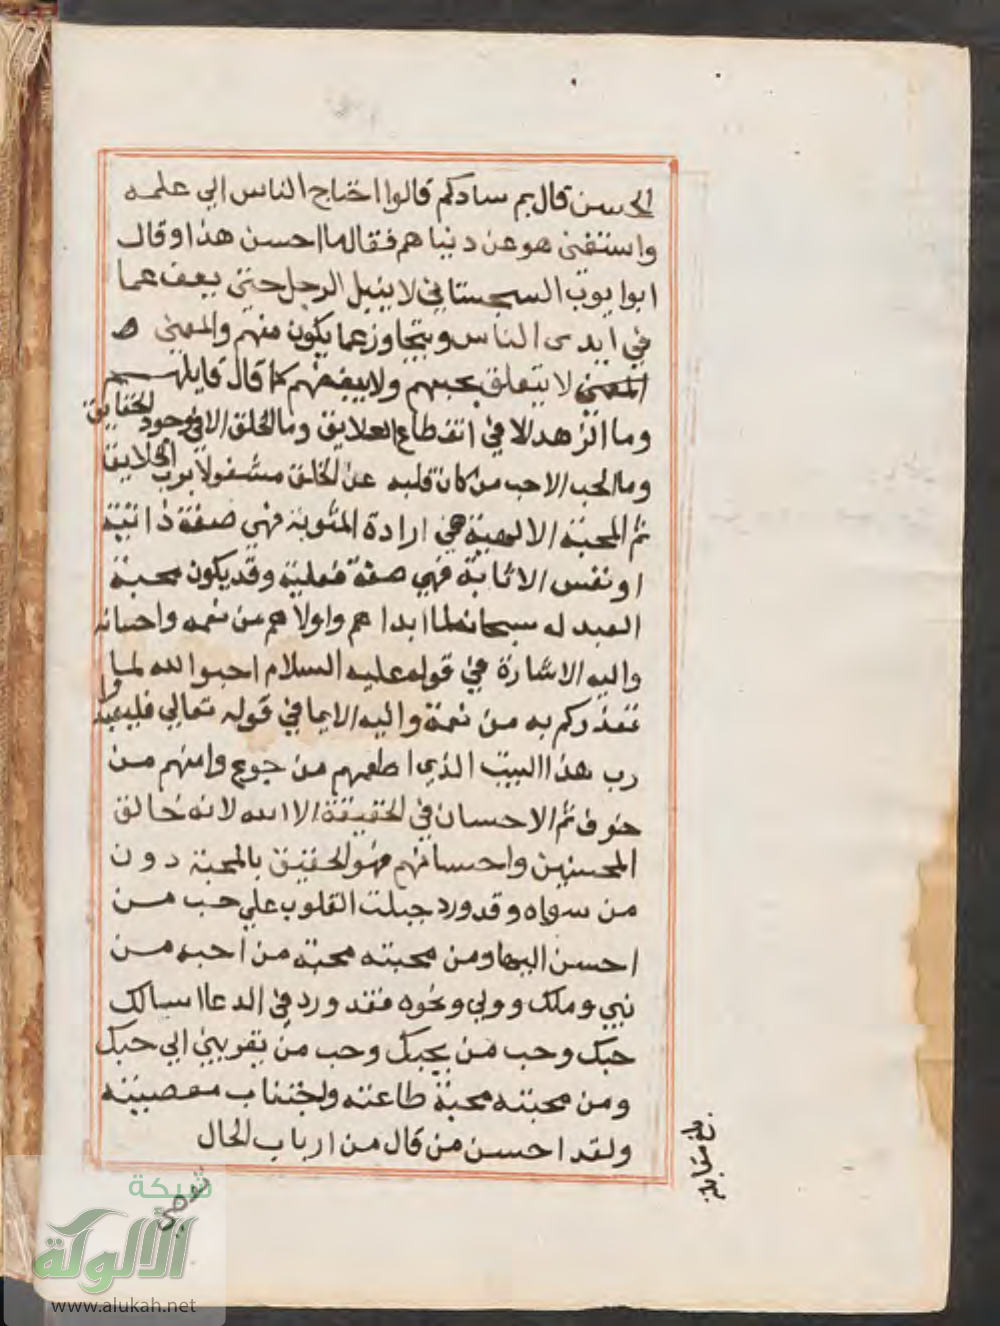 الحسن قال بم سادكم قالوا احتاج الناس الي علمه
واستغني هو عن دنياهم فقال ما احسن هذا وقال
ابو ايوب السجستاني لا ينبل الرجل حتي يعف عما
في ايدي الناس ويتجاوز عما يكون منهم والمعني
المعني لا يتعلق بحبهم ولا ببغضهم كما قال قايلهم
وما الزهد الا في انقطاع العلايق وما الخلق الا في وجود الحقايق
وما الحب الا حب من كان قلبه عن الخلق مشغولا برب الخلايق
ثم المحبة الالهية هي ارادة المثوبة فهي صفة ذاتية
او نفس الاثابة فهي صفة فعلية وقد يكون محبة
العبد له سبحانه لما ابداهم واولاهم من نعمه واحسانه
واليه الاشارة في قوله عليه السلام احبوا الله لما
تغذركم به من نعمة واليه الايما في قوله تعالي فليعبدوا
رب هذا البيت الذي اطعمهم من جوع وامنهم من
خوف ثم الاحسان في الحقيقة الا الله لانه خالق
المحسنين واحسانهم فهو الحقيق بالمحبة دون
من سواه وقد ورد جبلت القلوب علي حب من
احسن اليها ومن محبته محبة من احبه من
نبي وملك وولي ونحوه فقد ورد في الدعا اسالك
حبك وحب من يحبك وحب من يقربني الي حبك
ومن محبته محبة طاعته واجتناب معصيته
ولقد احسن من قال من ارباب الحال
تعصي
بلغ مقابلة
شبكة
الألوكة
www.alukah.net